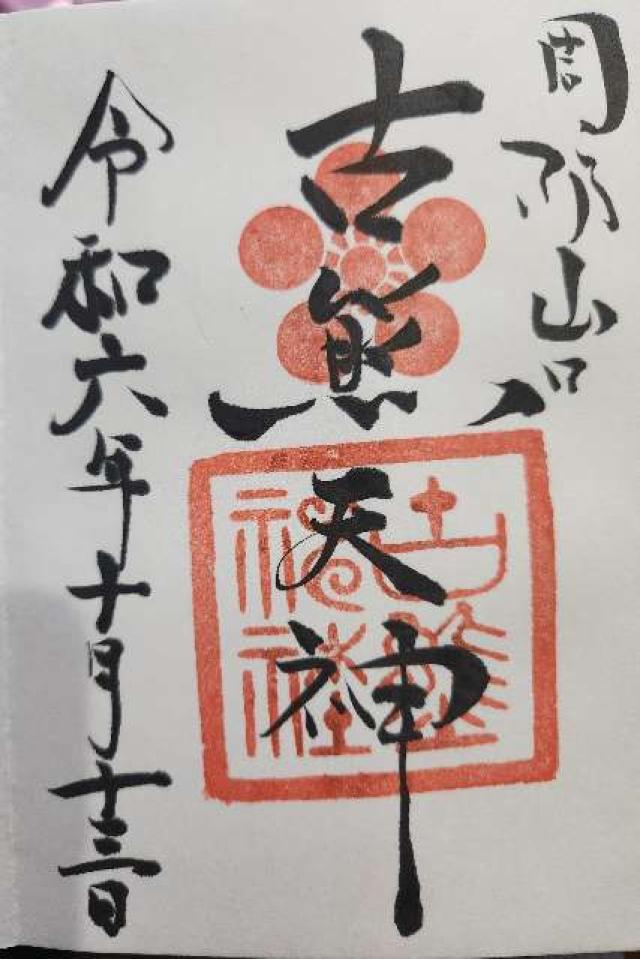 周防山口
古熊天神
古熊神社
令和六年十月十三日